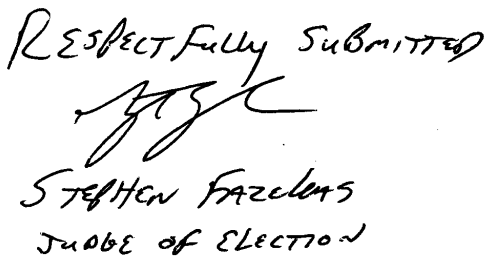 Respectfully Submitted
Stephen Fazekas
Judge of Election